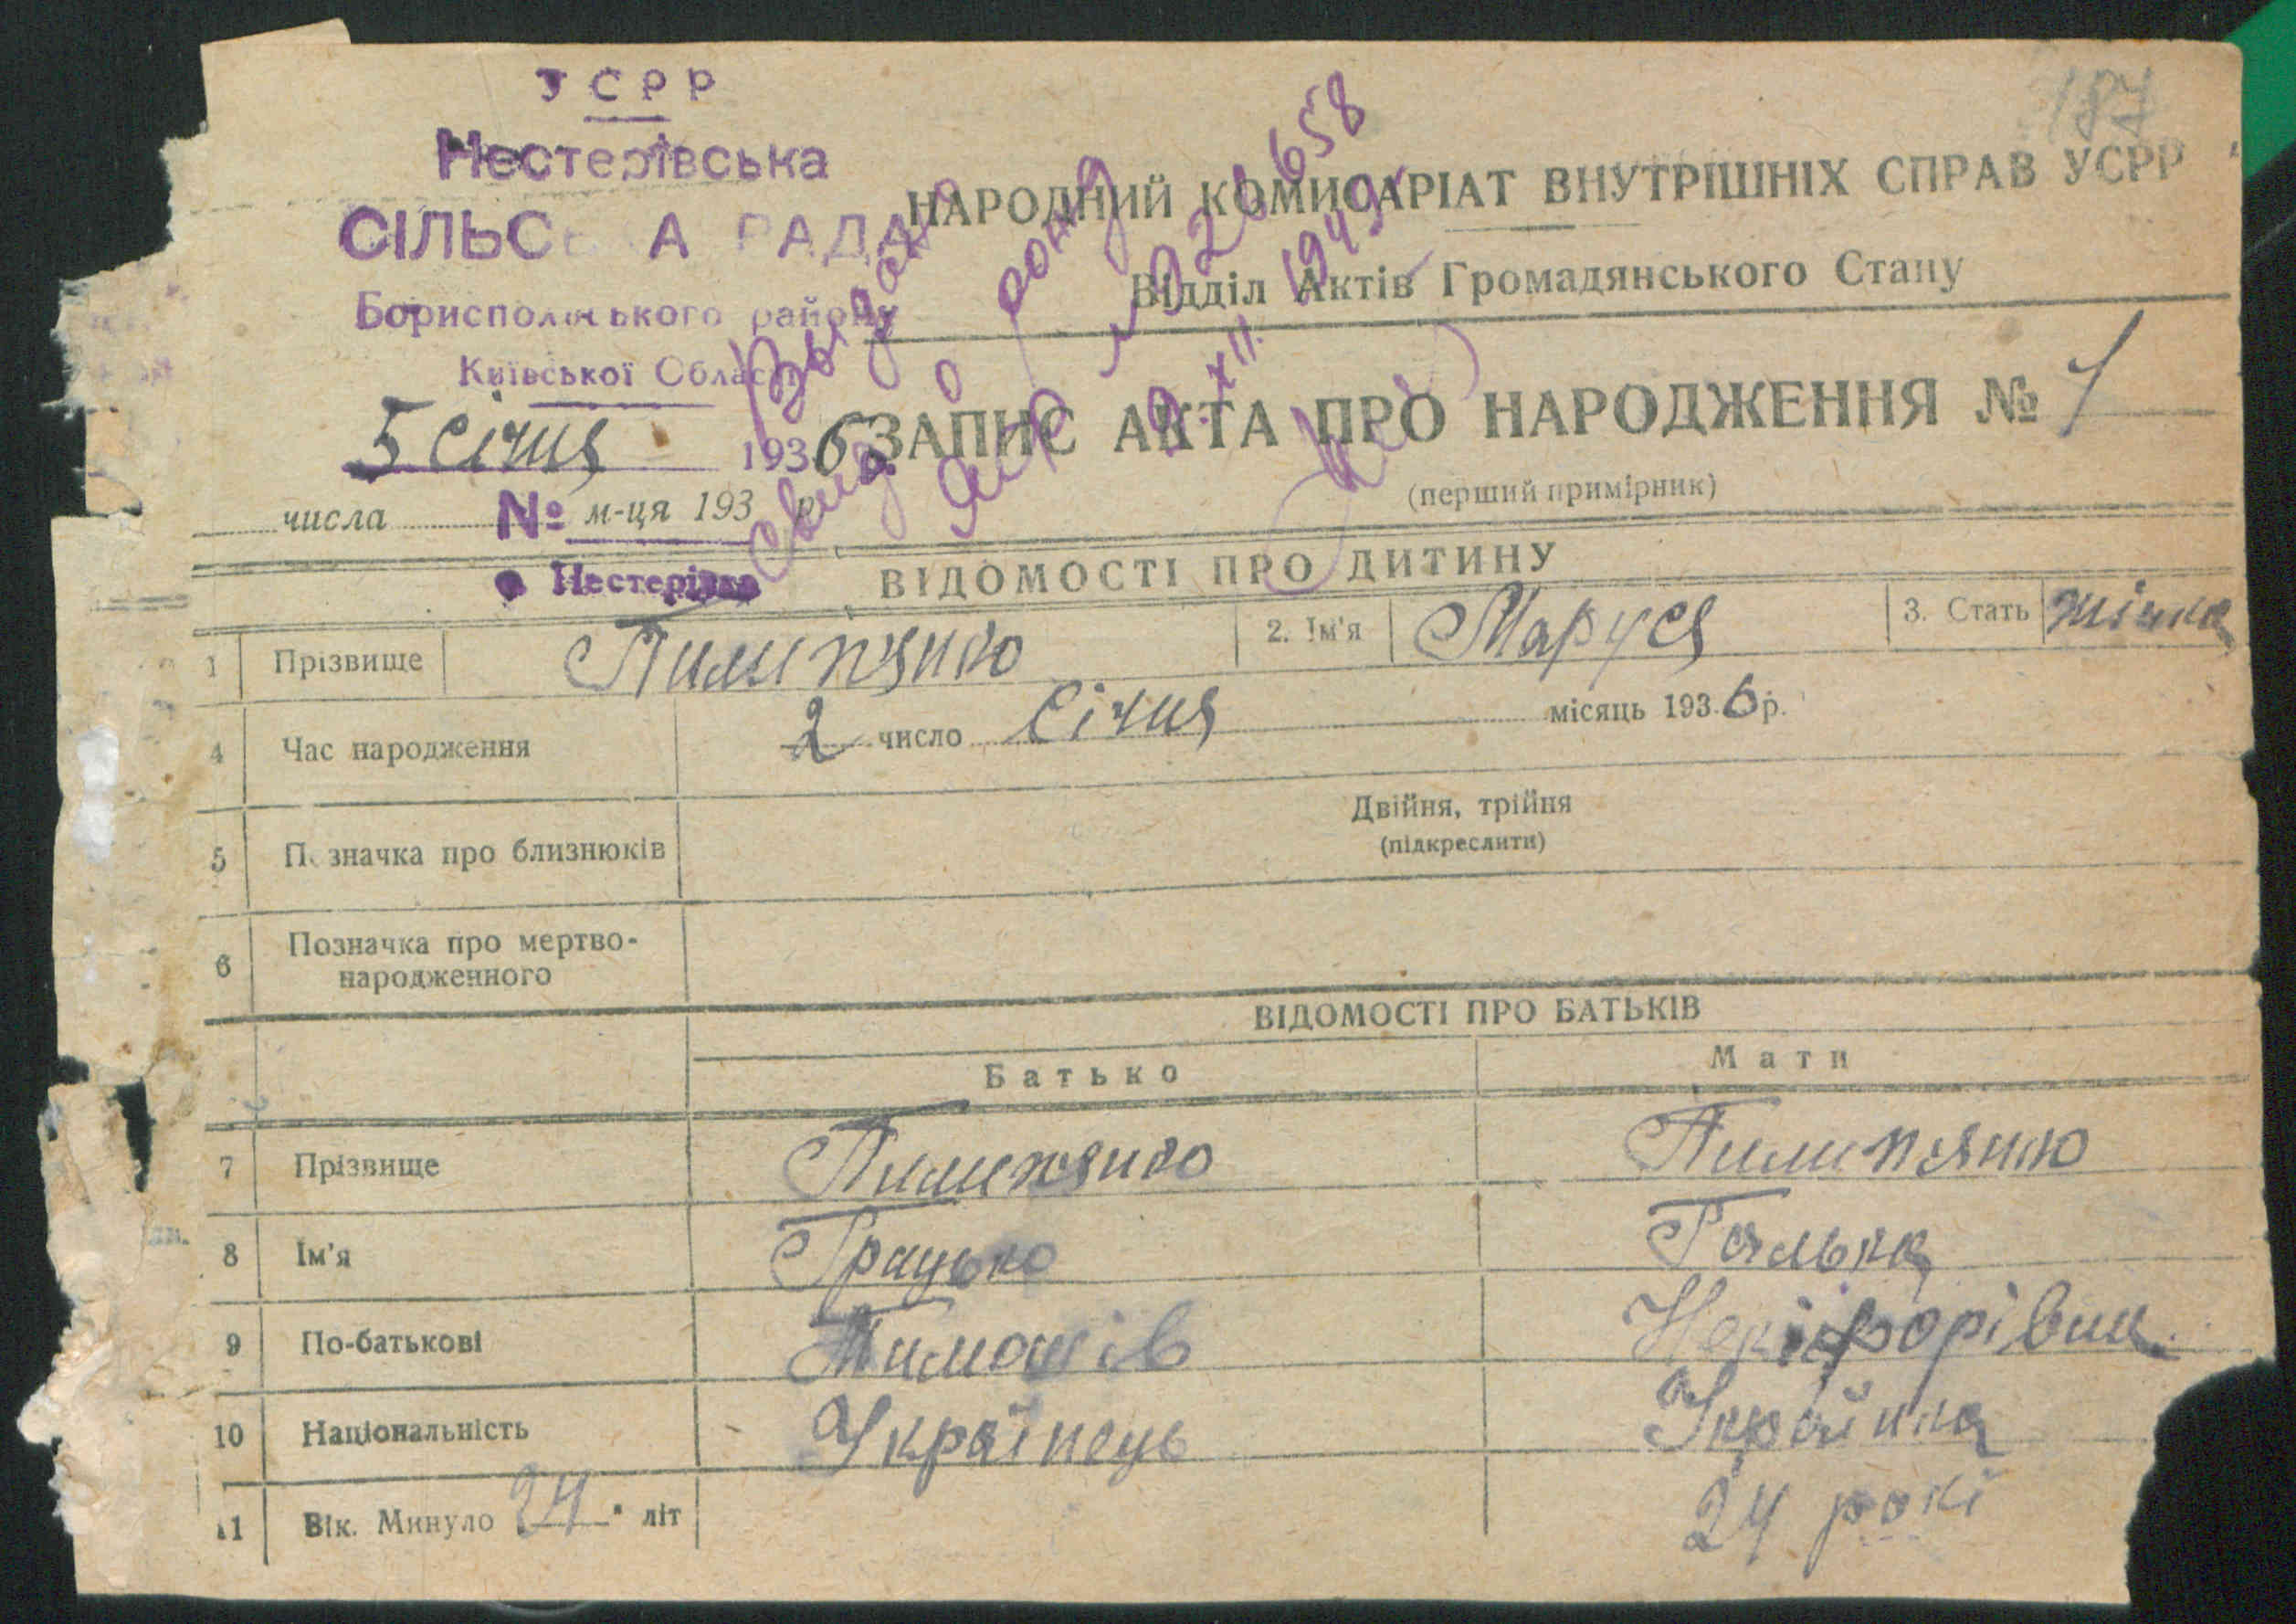 187
УСРР
Нестерівська
СІЛЬСЬКА РАДА
Бориспольського району
Київської Області
5 січня 1936
числа м-ця 193 р.
№
с Нестерівка
НАРОДНИЙ КОМИСАРІАТ ВНУТРІШНІХ СПРАВ УСРР
Відділ Актів Громадянського Стану
ЗАПИС АКТА ПРО НАРОДЖЕННЯ № 1
(перший примірник)
Выдано
свид о рожд
ЯЮ № 026658
9.XII. 1949г
ВІДОМОСТІ ПРО ДИТИНУ
1 Прізвище Пилипянко 2. Ім'я Маруся 3. Стать жіноч
4 Час народження 2 число Січня місяць 1936 р.
5 Позначка про близнюків Двійня, трійня
(підкреслити)
6 Позначка про мертво-
народженного
ВІДОМОСТІ ПРО БАТЬКІВ
Батько Мати
7 Прізвище Пилипянко Пилипянко
8 Ім'я Грицько Галька
9 По-батькові Тимошів Некіфорівна
10 Національність Українець Українка
11 Вік. Минуло 24 літ 24 рокі